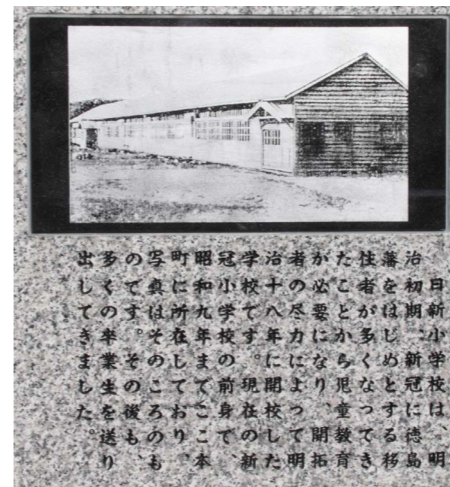 日新小学校は、明
治初期、新冠に徳島
藩をはじめとする移
住者が多くなってき
たことから児童教育
が必要になり、開拓
者の尽力によって明
治十八年に開校した
学校です。現在の新
冠小学校の前身で、
昭和九年までここ本
町に所在しており、
写真はそのころのも
のです。その後も、
多くの卒業生を送り
出してきました。